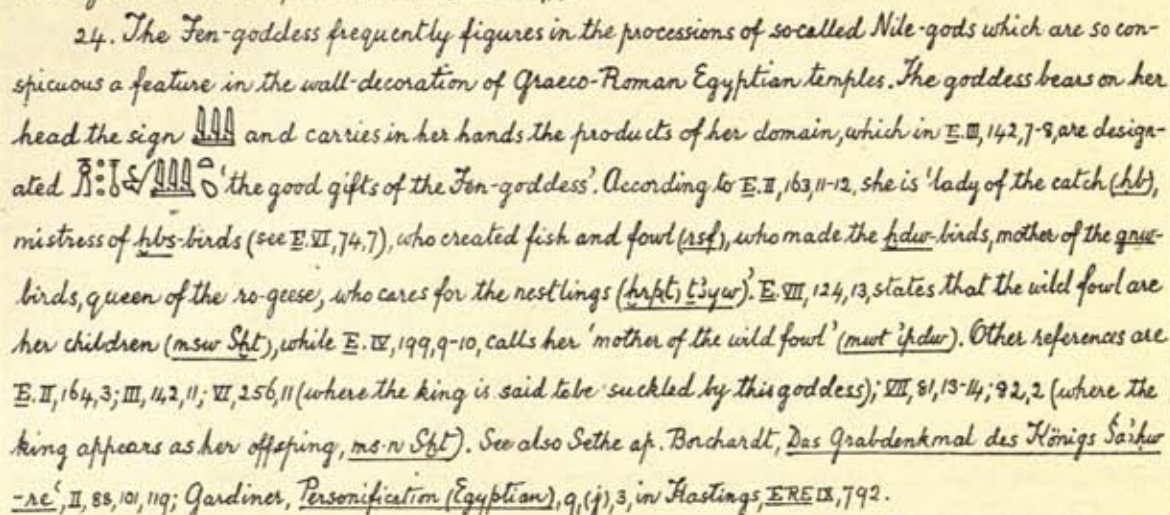 24. The Fen-goddess frequently figures in the processions of so-called Nile-gods which are so con-
spicuous a feature in the wall-decoration of Graeco-Roman Egyptian temples. The goddess bears on her
head the sign 𓇏 and carries in her hands the products of her domain, which in E. III, 142, 7-8, are design-
ated 'the good gifts of the Fen-goddess'. According to E. II, 163, 11-12, she is 'lady of the catch (ḥb),
mistress of ḫbs-birds (see E. VI, 74, 7), who created fish and fowl (rsf), who made the ḥdw-birds, mother of the gnw-
birds, queen of the ro-geese, who cares for the nestlings (ḫrpt ṯꜣyw)'. E. VII, 124, 13, states that the wild fowl are
her children (msw Sḫt), while E. IV, 199, 9-10, calls her 'mother of the wild fowl' (mwt ꜣpdw). Other references are
E. II, 164, 3; III, 142, 11; VI, 256, 11 (where the king is said to be suckled by this goddess); VII, 81, 13-14; 82, 2 (where the
king appears as her offsping, ms·n Sḫt). See also Sethe ap. Borchardt, Das Grabdenkmal des Königs Śaꜣḥw
-reꜥ, II, 88, 101, 119; Gardiner, Personification (Egyptian), 9, (j), 3, in Hastings, ERE IX, 792.